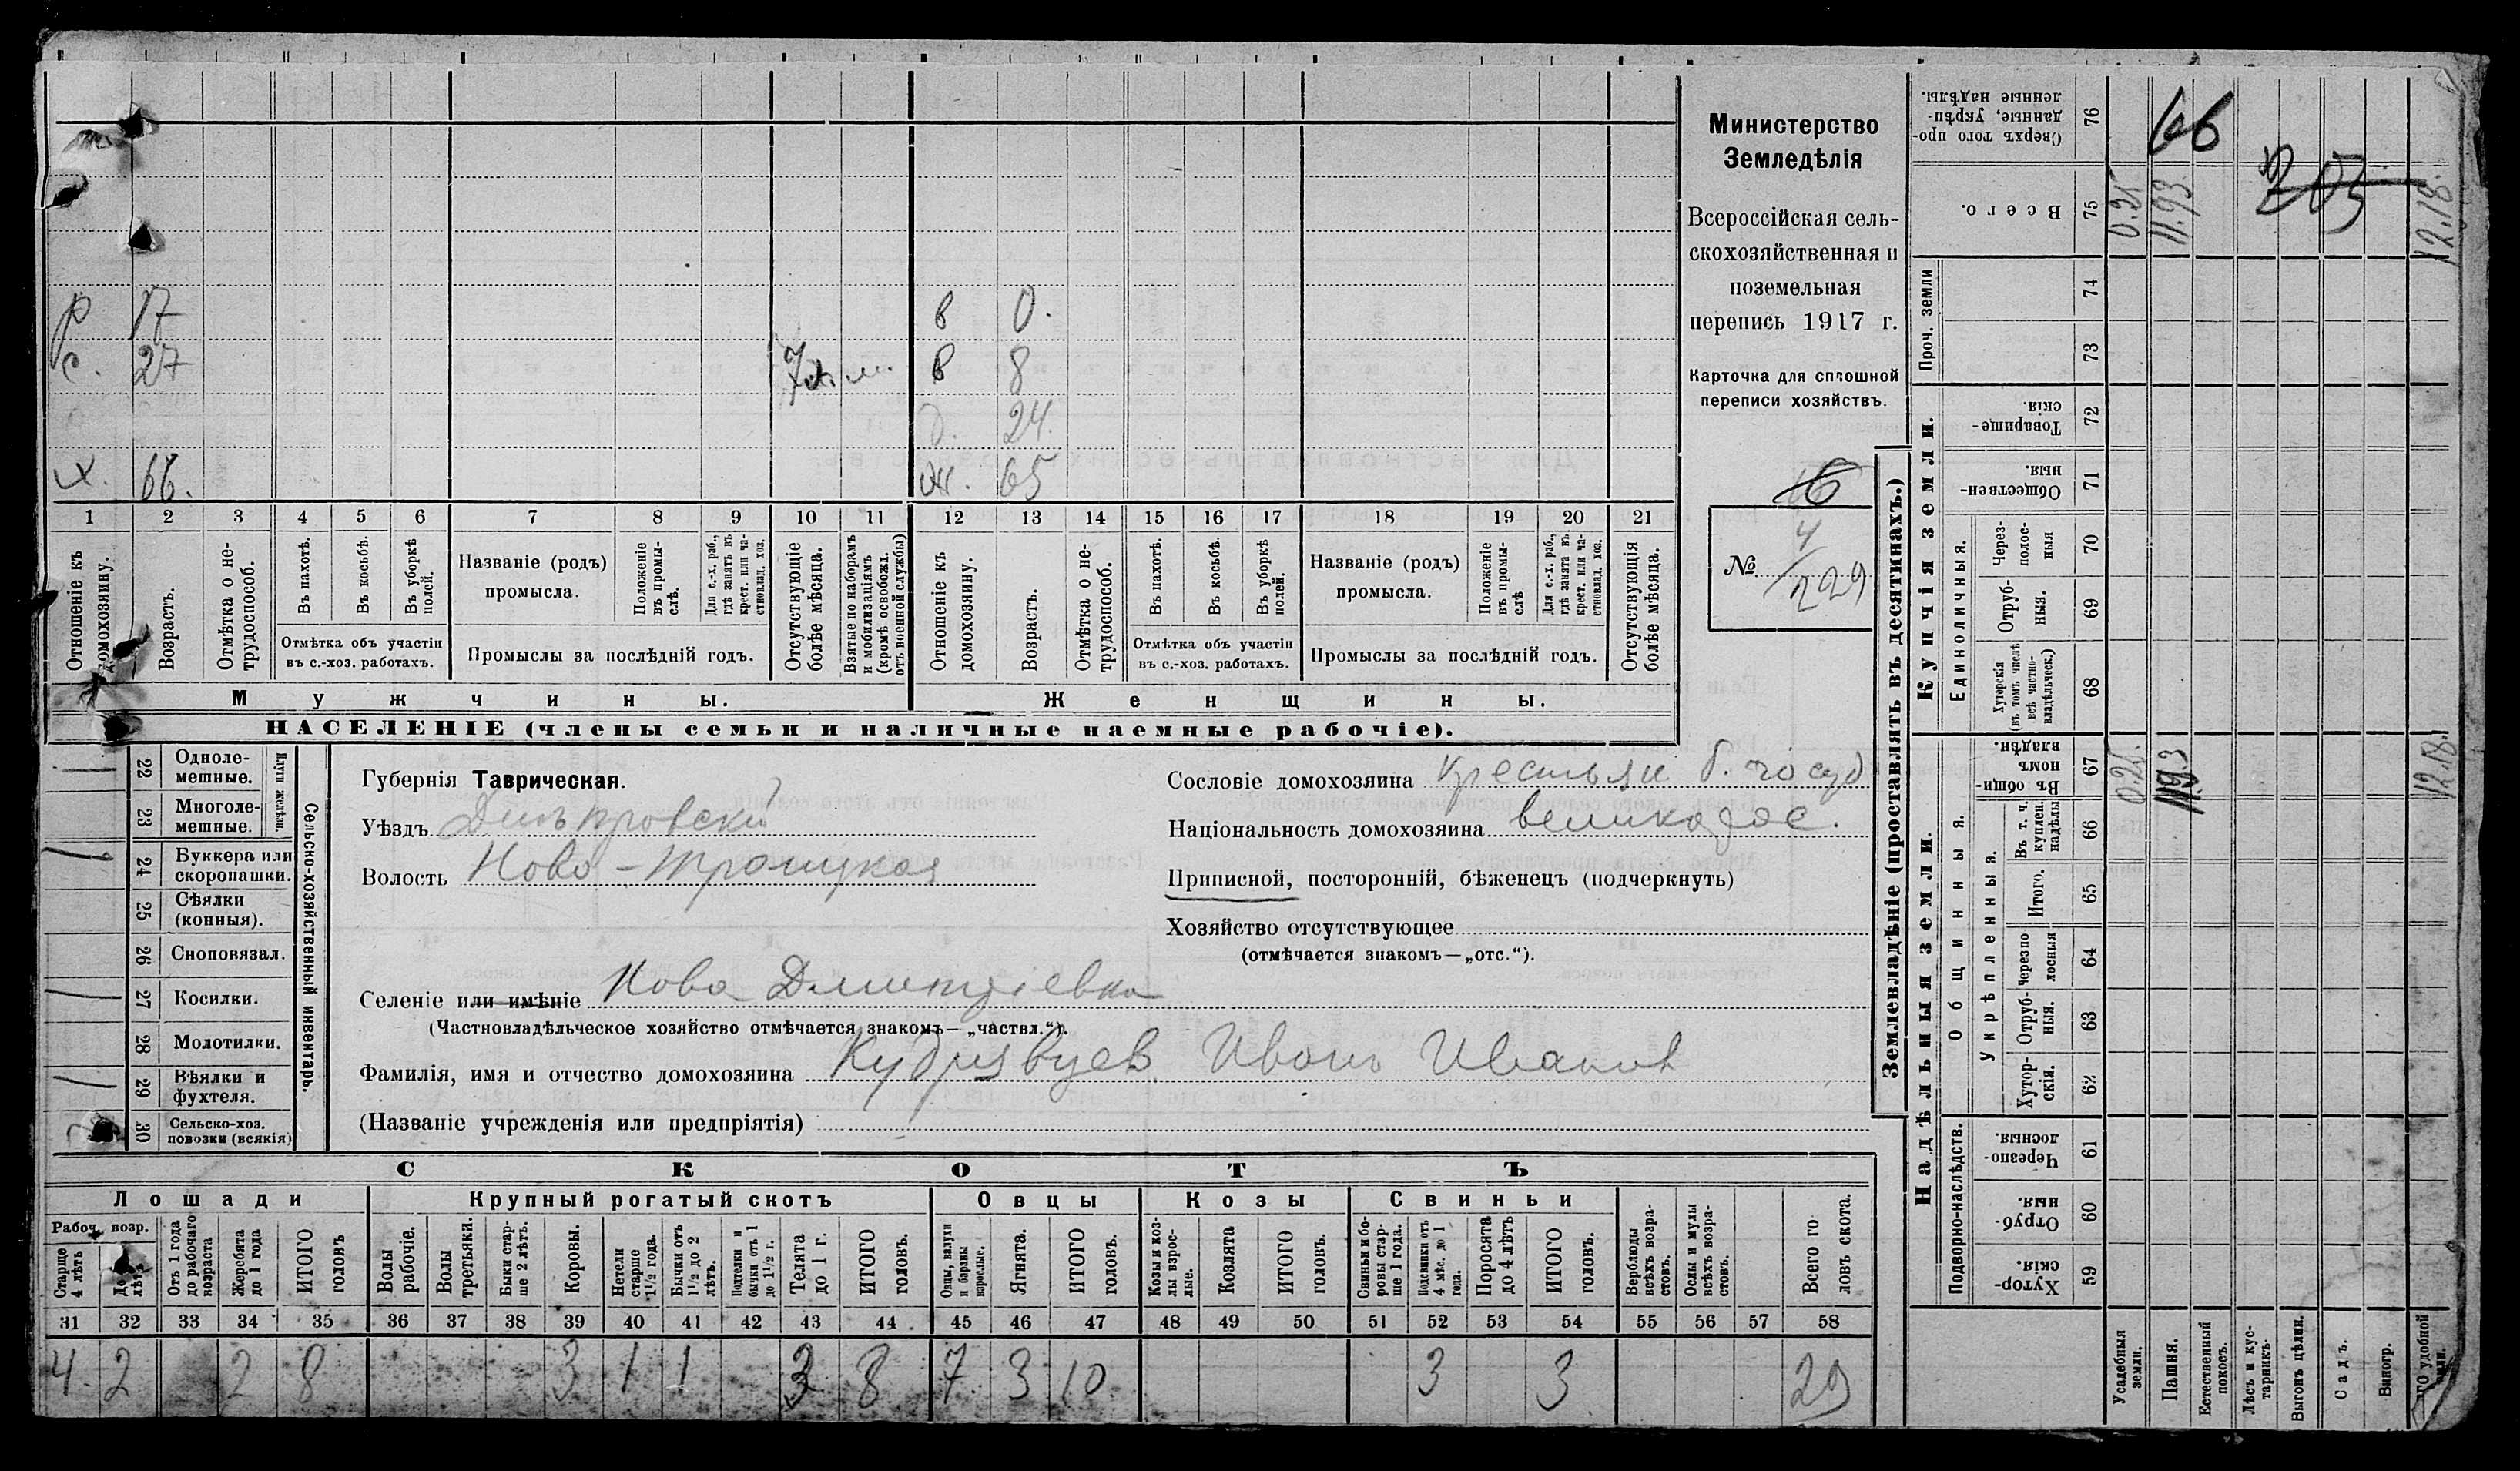 р 17 в 0.
с. 27 7 м. в 8
д. 24.
х. 66. ж. 65
1 2 3 4 5 6 7 8 9 10 11 12 13 14 15 16 17 18 19 20 21
Отношеніе къ домохозяину.
Возрастъ.
Отмѣтка о нетрудоспособ.
Въ пахотѣ.
Въ косьбѣ.
Въ уборкѣ полей.
Отмѣтка объ участіи
въ с.-хоз. работахъ.
Названіе (родъ)
промысла.
Положеніе въ промыслѣ.
Для с.-х. раб., гдѣ занятъ въ крест. или частновлад. хоз.
Промыслы за послѣдній годъ.
Отсутствующіе болѣе мѣсяца.
Взятые по наборамъ и мобилизаціямъ (кромѣ освобожд. отъ военной службы)
Отношеніе къ домохозяину.
Возрастъ.
Отмѣтка о нетрудоспособ.
Въ пахотѣ.
Въ косьбѣ.
Въ уборкѣ полей.
Отмѣтка объ участіи
въ с.-хоз. работахъ.
Названіе (родъ)
промысла.
Положеніе въ промыслѣ
Для с.-х. раб., гдѣ занята въ крест. или частновлад. хоз.
Промыслы за послѣдній годъ.
Отсутствующія болѣе мѣсяца.
Мужчины. Женщины.
НАСЕЛЕНІЕ (члены семьи и наличные наемные рабочіе).
Министерство
Земледѣлія
Всероссійская сель-
скохозяйственная и
поземельная
перепись 1917 г.
Карточка для сплошной
переписи хозяйствъ.
6
№ 4/229
22 Одноле-
мешные.
23 Многоле-
мешные.
Плуги желѣзн.
24 Буккера или
скоропашки.
25 Сѣялки
(конныя).
26 Сноповязал.
27 Косилки.
28 Молотилки.
29 Вѣялки и
фухтеля.
30 Сельско-хоз.
повозки (всякія)
Сельско-хозяйственный инвентарь.
Губернія Таврическая.
Уѣздъ Днѣпровскій
Волость Ново-Троицкая
Селеніе или имѣніе Ново Дмитріевка
(Частновладѣльческое хозяйство отмѣчается знакомъ— „частвл.“).
Фамилія, имя и отчество домохозяина Кудрявцев Иванъ Иванов
(Названіе учрежденія или предпріятія)
Сословіе домохозяина Крестьян б. госуд
Національность домохозяина великорос.
Приписной, посторонній, бѣженецъ (подчеркнуть)
Хозяйство отсутствующее
(отмѣчается знакомъ—„отс.“).
СКОТЪ
Лошади Крупный рогатый скотъ Овцы Козы Свиньи
Рабоч. возр.
Старше 4 лѣтъ
До лѣтъ
Отъ 1 года до рабочаго возраста
Жеребята до 1 года
ИТОГО головъ
Волы рабочіе.
Волы третьяки.
Быки старше 2 лѣтъ.
Коровы.
Нетели старше 1½ года.
Бычки отъ 1½ до 2 лѣтъ.
Подтелки и бычки отъ 1 до 1½ г.
Телята до 1 г.
ИТОГО головъ.
Овцы, валухи и бараны взрослые.
Ягнята.
ИТОГО головъ.
Козы и козлы взрослые.
Козлята
ИТОГО головъ.
Свиньи и боровы старше 1 года.
Подсвинки отъ 4 мѣс. до 1 года.
Поросята до 4 лѣтъ
ИТОГО головъ.
Верблюды всѣхъ возрастовъ.
Ослы и мулы всѣхъ возрастовъ.
Всего головъ скота.
31 32 33 34 35 36 37 38 39 40 41 42 43 44 45 46 47 48 49 50 51 52 53 54 55 56 57 58
4 2 2 8 3 1 1 3 8 7 3 10 3 3 29
Землевладѣніе (проставлять въ десятинахъ.)
Купчія земли.
Надѣльныя земли.
Сверхъ того проданные, укрѣпленные надѣлы. 76 66
Всего. 75 0.25 11.93 12.18
203
Проч. земли 74
73
Товарищескія. 72
Общественныя. 71
Единоличныя.
Черезполосныя 70
Отрубныя. 69
Хуторскія (въ томъ числѣ всѣ частновладѣльческ.) 68
Въ общинномъ владѣн. 67 0.25 11.93 12.18
Общинныя.
Укрѣпленныя.
Въ т. ч. куплен. надѣлы 66
Итого. 65
Черезполосныя 64
Отрубныя. 63
Хуторскія. 62
Подворно-наслѣдств.
Черезполосныя. 61
Отрубныя. 60
Хуторскія. 59
Усадебныя земли.
Пашня.
Естественный покосъ.
Лѣсъ и кустарникъ.
Выгонъ цѣлин.
Садъ.
Виногр.
удобной земли.